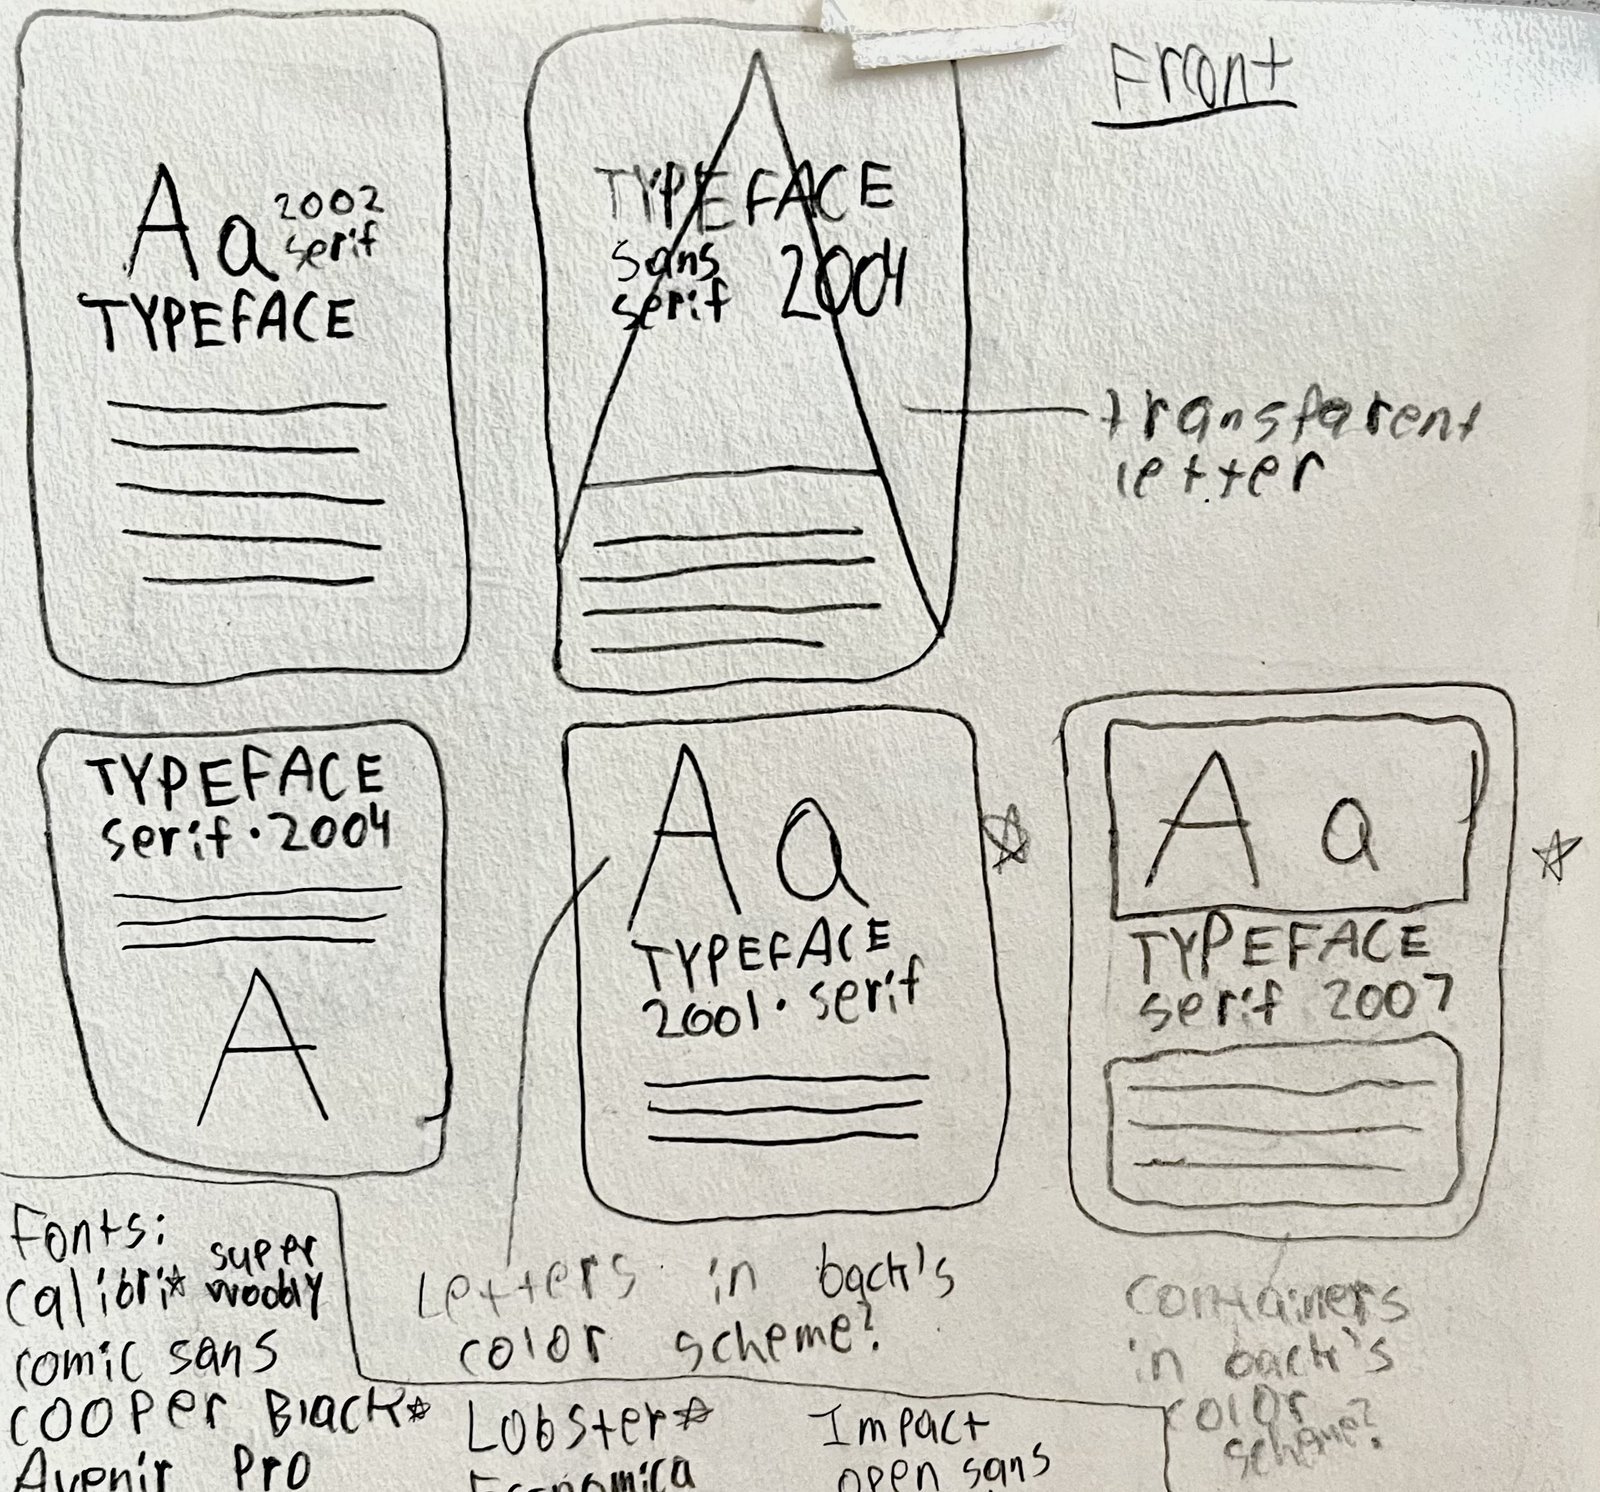 Front
Aa 2002
serif
TYPEFACE
TYPEFACE
sans
serif 2004
transparent
letter
TYPEFACE
serif · 2004
A
A a
TYPEFACE
2001 · serif
A a
TYPEFACE
serif 2007
Letters in back's
color scheme?
Containers
in back's
color
scheme?
Fonts:
calibri super
woobly
comic sans
COOPER BLACK
Avenir Pro
Lobster
Economica
Impact
open sans